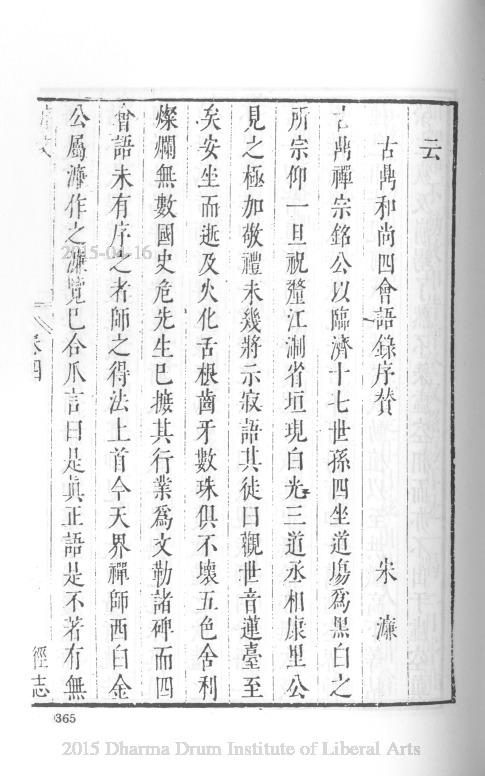 云
古鼎和尚四會語錄序賛 宋濂
古鼎禪宗銘公以臨濟十七世孫四坐道場爲黑白之
所宗仰一旦祝釐江淛省垣現白光三道丞相康里公
見之極加敬禮未幾將示寂語其徒曰觀世音蓮臺至
矣安坐而逝及火化舌根齒牙數珠俱不壞五色舍利
燦爛無數國史危先生已摭其行業爲文勒諸碑而四
會語未有序之者師之得法上首今天界禪師西白金
公屬濂作之濂覽已合爪言曰是眞正語是不著有無
卷四
徑志
365
2015-04-16
2015 Dharma Drum Institute of Liberal Arts